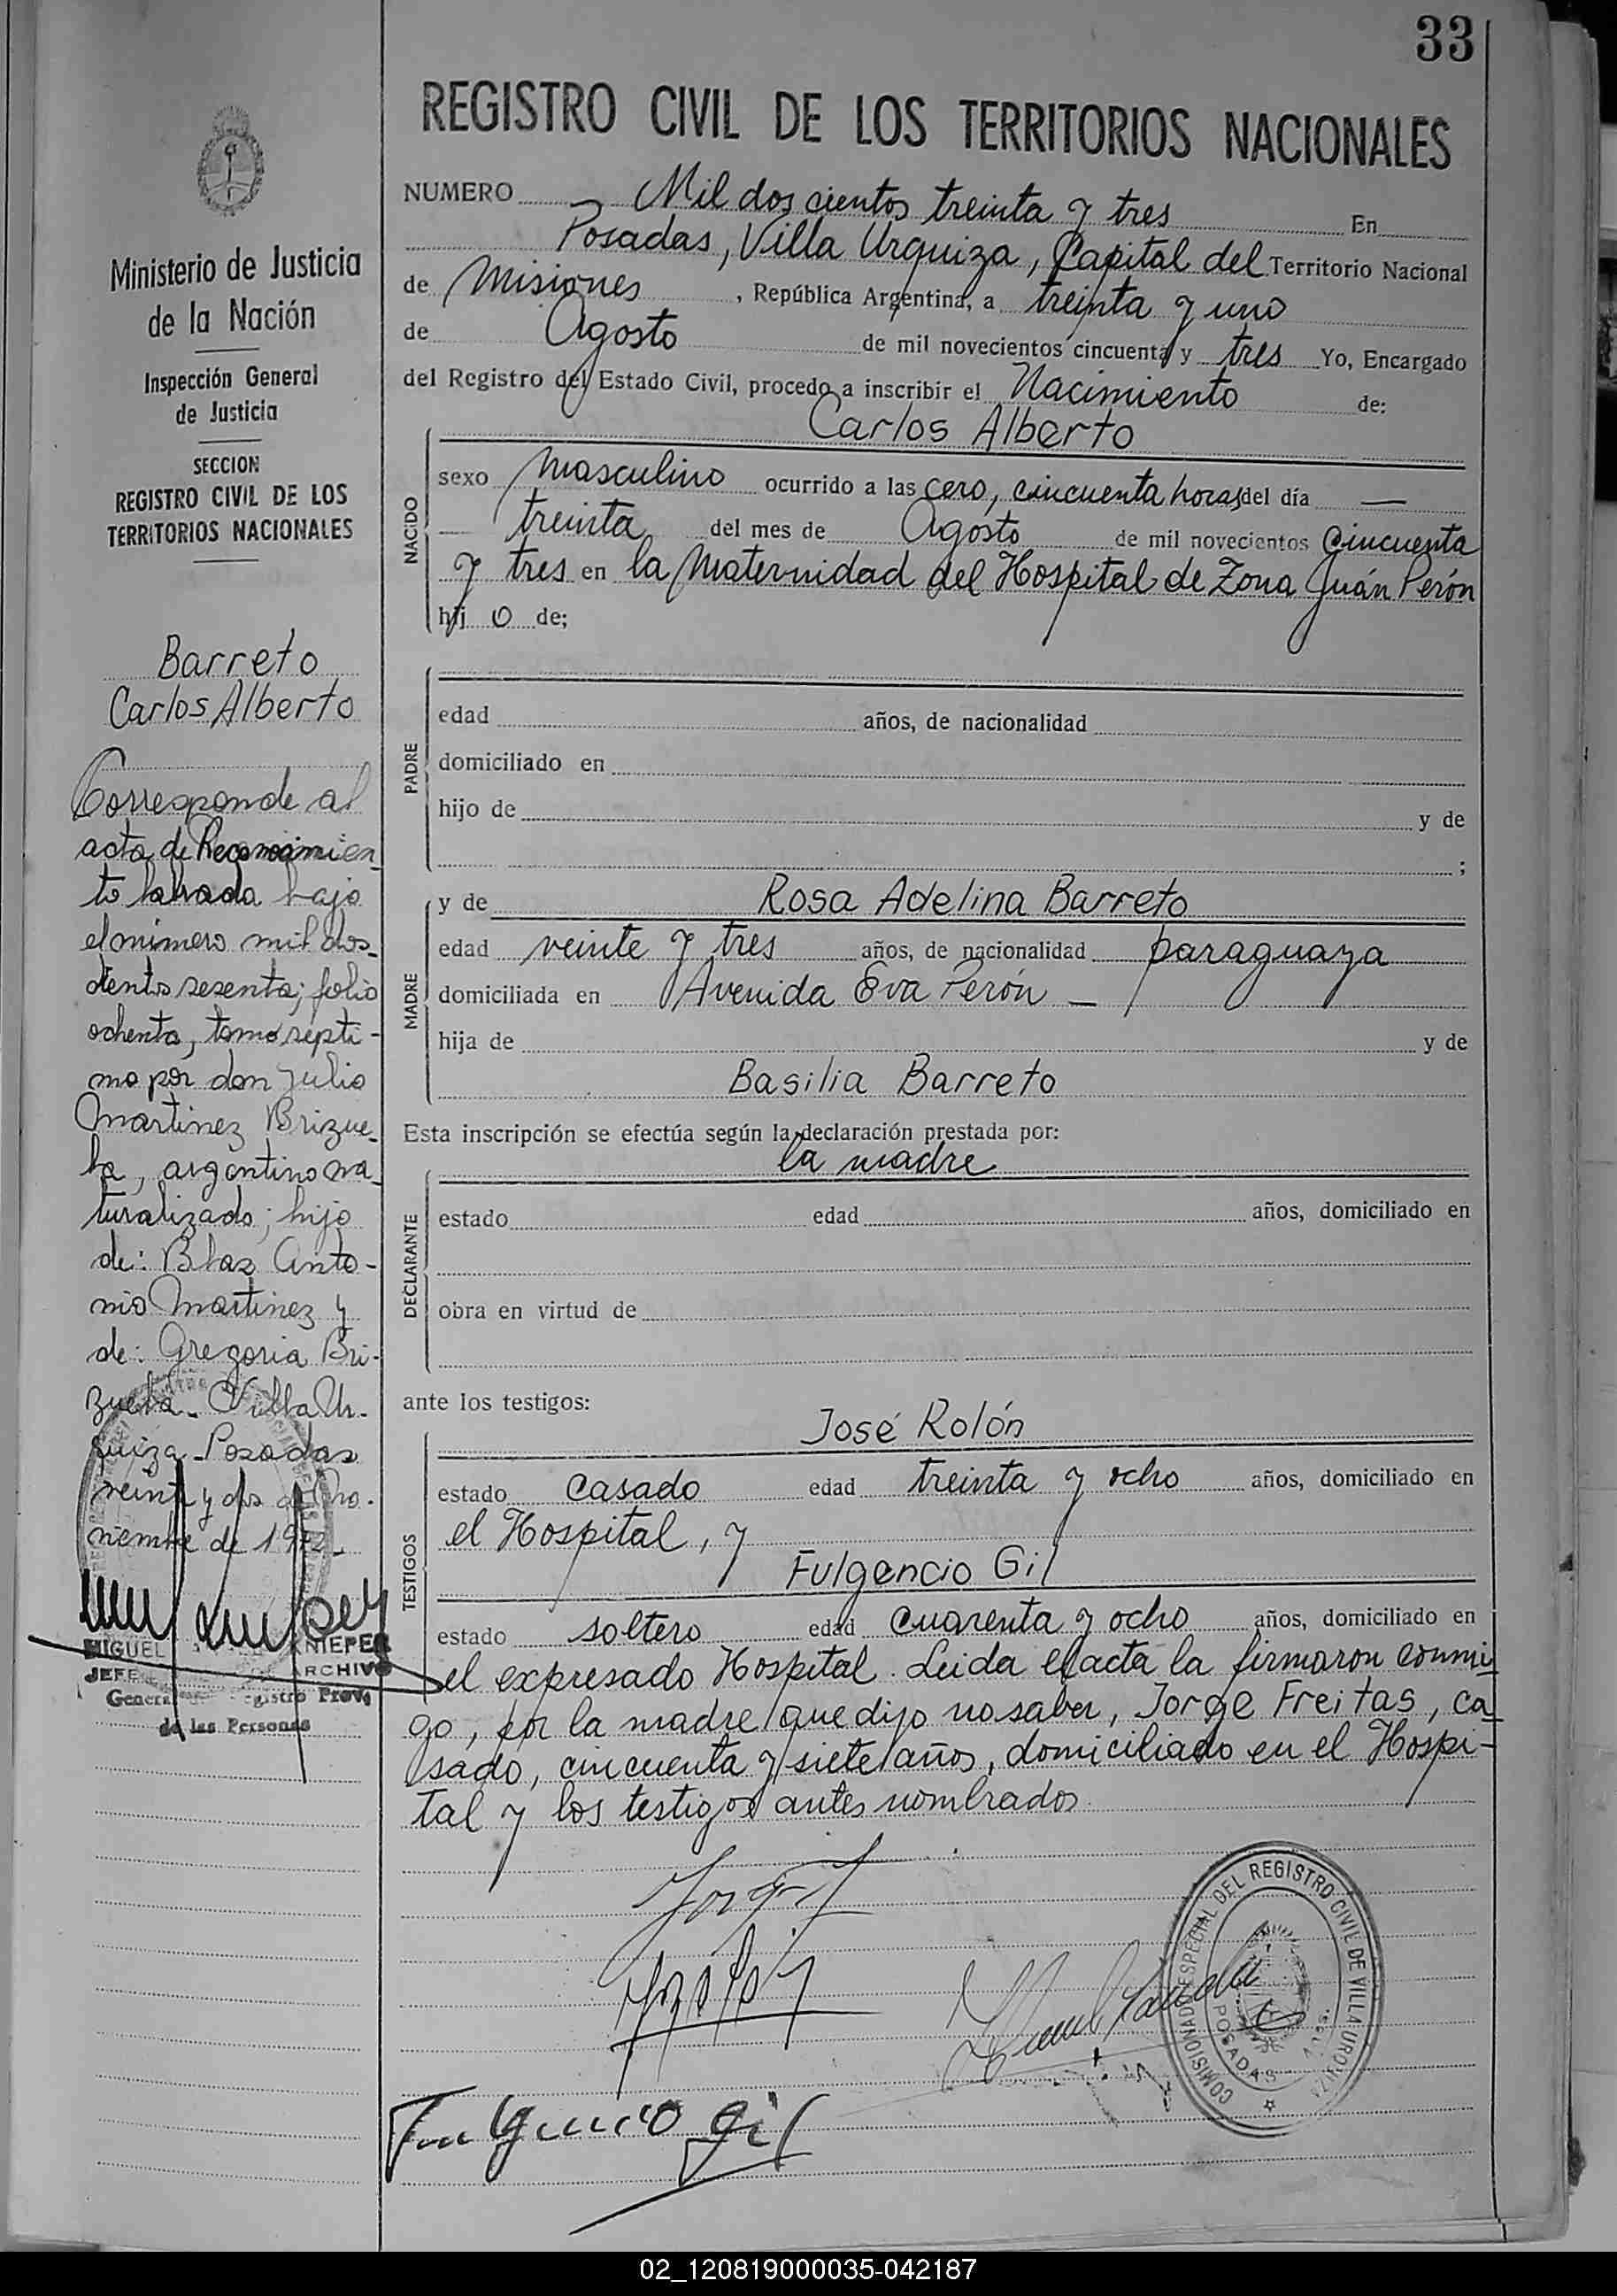 33
REGISTRO CIVIL DE LOS TERRITORIOS NACIONALES
Ministerio de Justicia
de la Nación
Inspección General
de Justicia
SECCION
REGISTRO CIVIL DE LOS
TERRITORIOS NACIONALES
Barreto
Carlos Alberto
Corresponde al
acta de Reconocimien
to labrada bajo
el número mil dos
cientos sesenta; folio
ochenta, tomo septi-
mo por don Julio
Martinez Brizue-
la, argentino na
turalizado; hijo
de: Blas Anto-
nio Martinez y
de: Gregoria Bri-
zuela. Villa Ur-
quiza Posadas
veinte y dos de No-
viembre de 1972
MIGUEL
JEFE ARCHIVO
General Registro Prov.
de las Personas
NUMERO Mil doscientos treinta y tres En
Posadas, Villa Urquiza, Capital del Territorio Nacional
de Misiones, República Argentina, a treinta y uno
de Agosto de mil novecientos cincuenta y tres Yo, Encargado
del Registro del Estado Civil, procedo a inscribir el Nacimiento de:
Carlos Alberto
NACIDO
sexo masculino ocurrido a las cero, cincuenta horas del día —
— treinta del mes de Agosto de mil novecientos cincuenta
y tres en la Maternidad del Hospital de Zona Juán Perón
hij o de;
PADRE
edad años, de nacionalidad
domiciliado en
hijo de y de
;
MADRE
y de Rosa Adelina Barreto
edad veinte y tres años, de nacionalidad paraguaya
domiciliada en Avenida Eva Perón —
hija de y de
Basilia Barreto
Esta inscripción se efectúa según la declaración prestada por:
la madre
DECLARANTE
estado edad años, domiciliado en
obra en virtud de
ante los testigos:
José Rolón
TESTIGOS
estado casado edad treinta y ocho años, domiciliado en
el Hospital, y
Fulgencio Gil
estado soltero edad cuarenta y ocho años, domiciliado en
el expresado Hospital. Leida el acta la firmaron conmi
go, por la madre que dijo no saber, Jorge Freitas, ca
sado, cincuenta y siete años, domiciliado en el Hospi-
tal y los testigos antes nombrados
Fulgencio Gil
COMISIONADO ESPECIAL DEL REGISTRO CIVIL DE VILLA URQUIZA
POSADAS
02_120819000035-042187